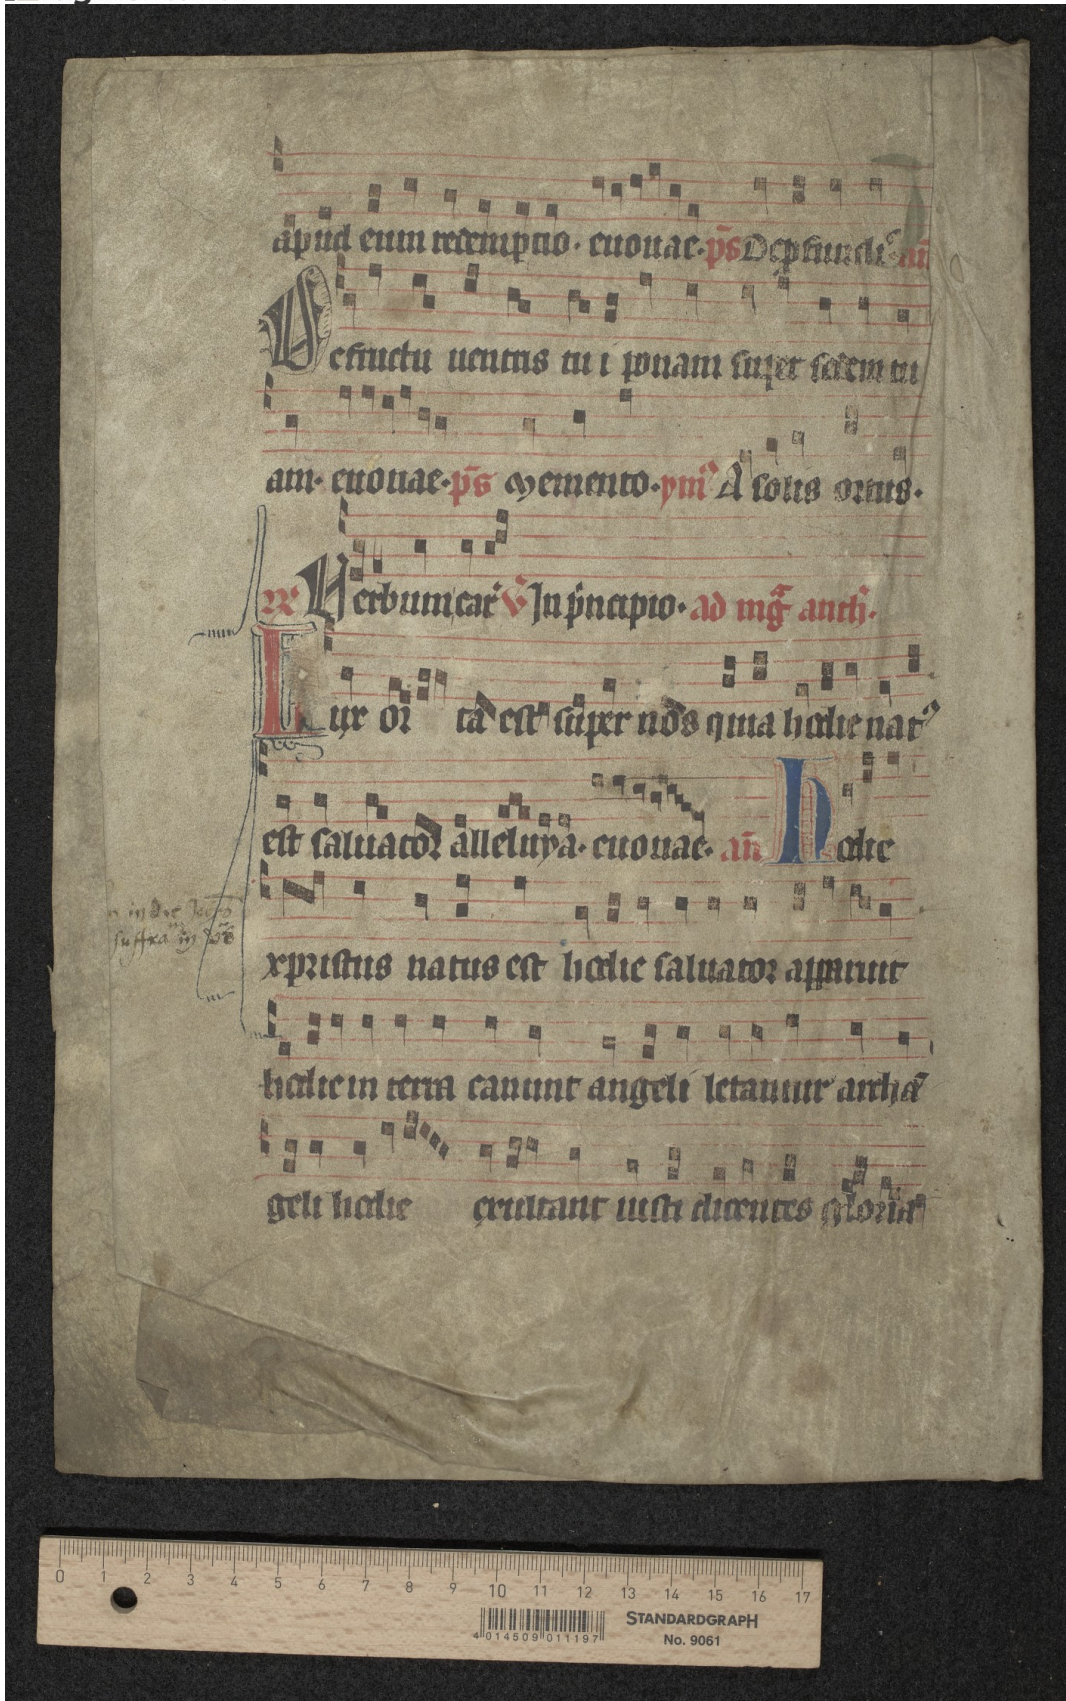 apud eum redempcio. euouae. ps̄ De ꝓfundis an̄
De fructu uentris tu i ponam super sedem tu
am. euouae. ps̄ Memento. ym̄ A solis ortus.
R Verbum car V In pͥncipio. ad mḡ anth.
Lux or ta est super nos quia hodie natꝰ
est saluator alleluya. euouae. an̄ Hodie
xpristus natus est hodie saluator apparuit
in die
suffra in
hodie in terra canunt angeli letantur archā
geli hodie exultant iusti dicentes gloria
0 1 2 3 4 5 6 7 8 9 10 11 12 13 14 15 16 17
4 014509 011197
STANDARDGRAPH
No. 9061